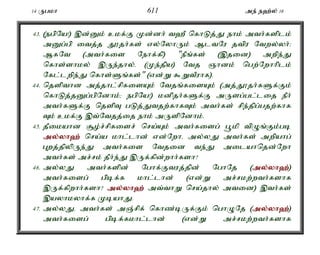 14 ருபமா 611 அந் நஹ்ல் 16
43. (நபியே!) இன்னும் உமக்கு முன்னர் வஹீ கொடுத்து நாம் அவர்களிடம்
அனுப்பி வைத்த தூதர்கள் எல்லோரும் ஆடவரே தவிர வேறல்லர்:
ஆகவே (அவர்களை நோக்கி) "நீங்கள் (இதனை) அறிந்து
கொள்ளாமல் இருந்தால், (முந்திய) வேத ஞானம் பெற்றோரிடம்
கேட்டறிந்து கொள்ளுங்கள்" (என்று கூறுவீராக).
44. தெளிவான அத்தாட்சிகளையும் வேதங்களையும் (அத்தூதர்களுக்கும்
கொடுத்தனுப்பினோம்; நபியே!) மனிதர்களுக்கு அருளப்பட்டதை நீர்
அவர்களுக்கு தெளிவு படுத்துவதற்காகவும் அவர்கள் சிந்திப்பதற்காக
வும் உமக்கு இவ்வேதத்தை நாம் அருளினோம்.
45. தீமையான சூழ்ச்சிகளைச் செய்யும் அவர்களைப் பூமி விழுங்கும்படி
அல்லாஹ் செய்ய மாட்டான் என்றோ, அல்லது அவர்கள் அறியாப்
புறத்திலிருந்து அவர்களை வேதனை வந்து அடையாதென்றோ
அவர்கள் அச்சம் தீர்ந்து இருக்கின்றார்களா?
46. அல்லது அவர்களின் போக்குவரத்தின் போதே (அல்லாஹ்)
அவர்களைப் பிடிக்க மாட்டான் (என்று அச்சமற்றவர்களாக
இருக்கிறார்களா? அல்லாஹ் அவ்வாறு செய்தால் அவனை) இவர்கள்
இயலாமலாக்க முடியாது.
47. அல்லது, அவர்கள் அஞ்சிக் கொண்டிருக்கும் பொழுதே (அல்லாஹ்)
அவர்களைப் பிடிக்கமாட்டான் (என்று அச்சமற்றவர்களாக